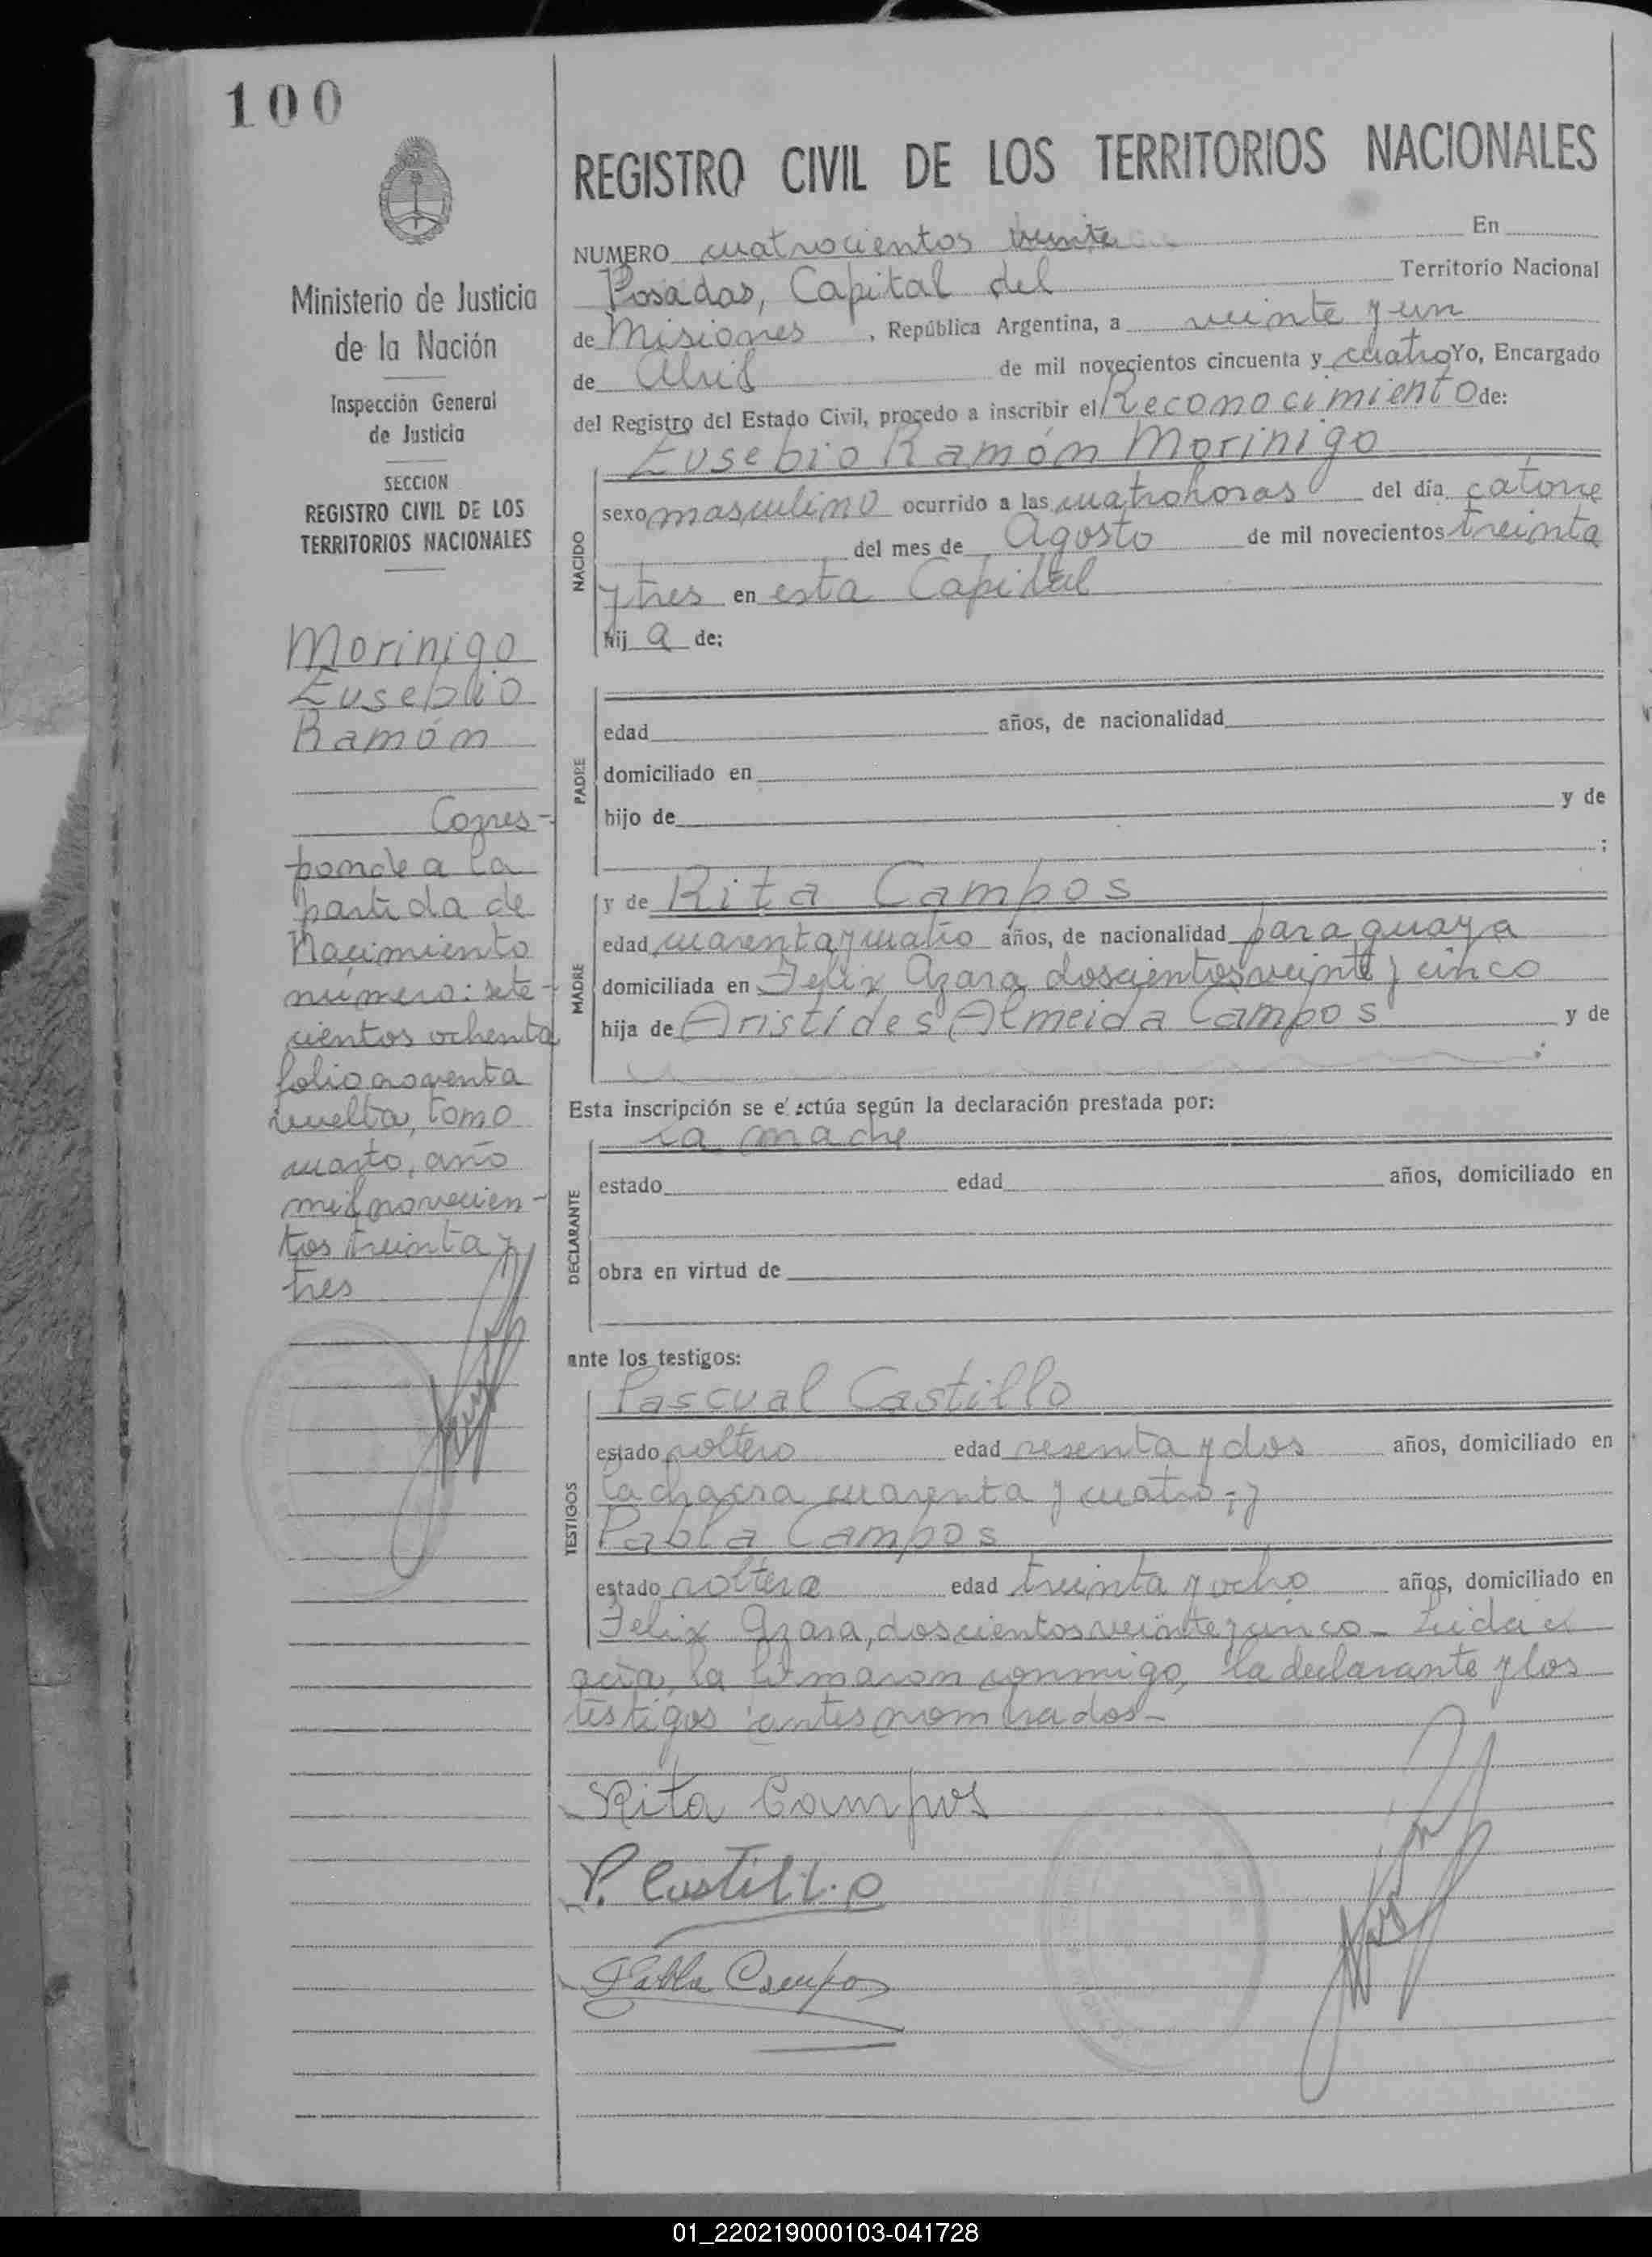 100
Ministerio de Justicia
de la Nación
Inspección General
de Justicia
SECCION
REGISTRO CIVIL DE LOS
TERRITORIOS NACIONALES
Morinigo
Eusebio
Ramón
Corres-
ponde a la
partida de
Nacimiento
número: sete-
cientos ochenta
folio noventa
vuelta, tomo
cuarto, año
mil novecien-
tos treinta y
tres
REGISTRO CIVIL DE LOS TERRITORIOS NACIONALES
NUMERO cuatrocientos treinta En
Posadas, Capital del Territorio Nacional
de Misiones, República Argentina, a veinte y un
de Abril de mil novecientos cincuenta y cuatro Yo, Encargado
del Registro del Estado Civil, procedo a inscribir el Reconocimiento de:
Eusebio Ramón Morinigo
NACIDO
sexo masculino ocurrido a las cuatro horas del día catorce
del mes de Agosto de mil novecientos treinta
y tres en esta Capital
hij a de:
PADRE
edad años, de nacionalidad
domiciliado en
hijo de y de
;
MADRE
y de Rita Campos
edad cuarenta y cuatro años, de nacionalidad paraguaya
domiciliada en Felix Azara doscientos veinte y cinco
hija de Aristídes Almeida Campos y de
;
Esta inscripción se efectúa según la declaración prestada por:
la madre
DECLARANTE
estado edad años, domiciliado en
obra en virtud de
ante los testigos:
Pascual Castillo
TESTIGOS
estado soltero edad sesenta y dos años, domiciliado en
la chacra cuarenta y cuatro; y
Pabla Campos
estado soltera edad treinta y ocho años, domiciliado en
Felix Azara, doscientos veinte y cinco - Leida el
acta, la firmaron conmigo, la declarante y los
testigos antes nombrados -
Rita Campos
P. Castillo
Pabla Campos
01_220219000103-041728